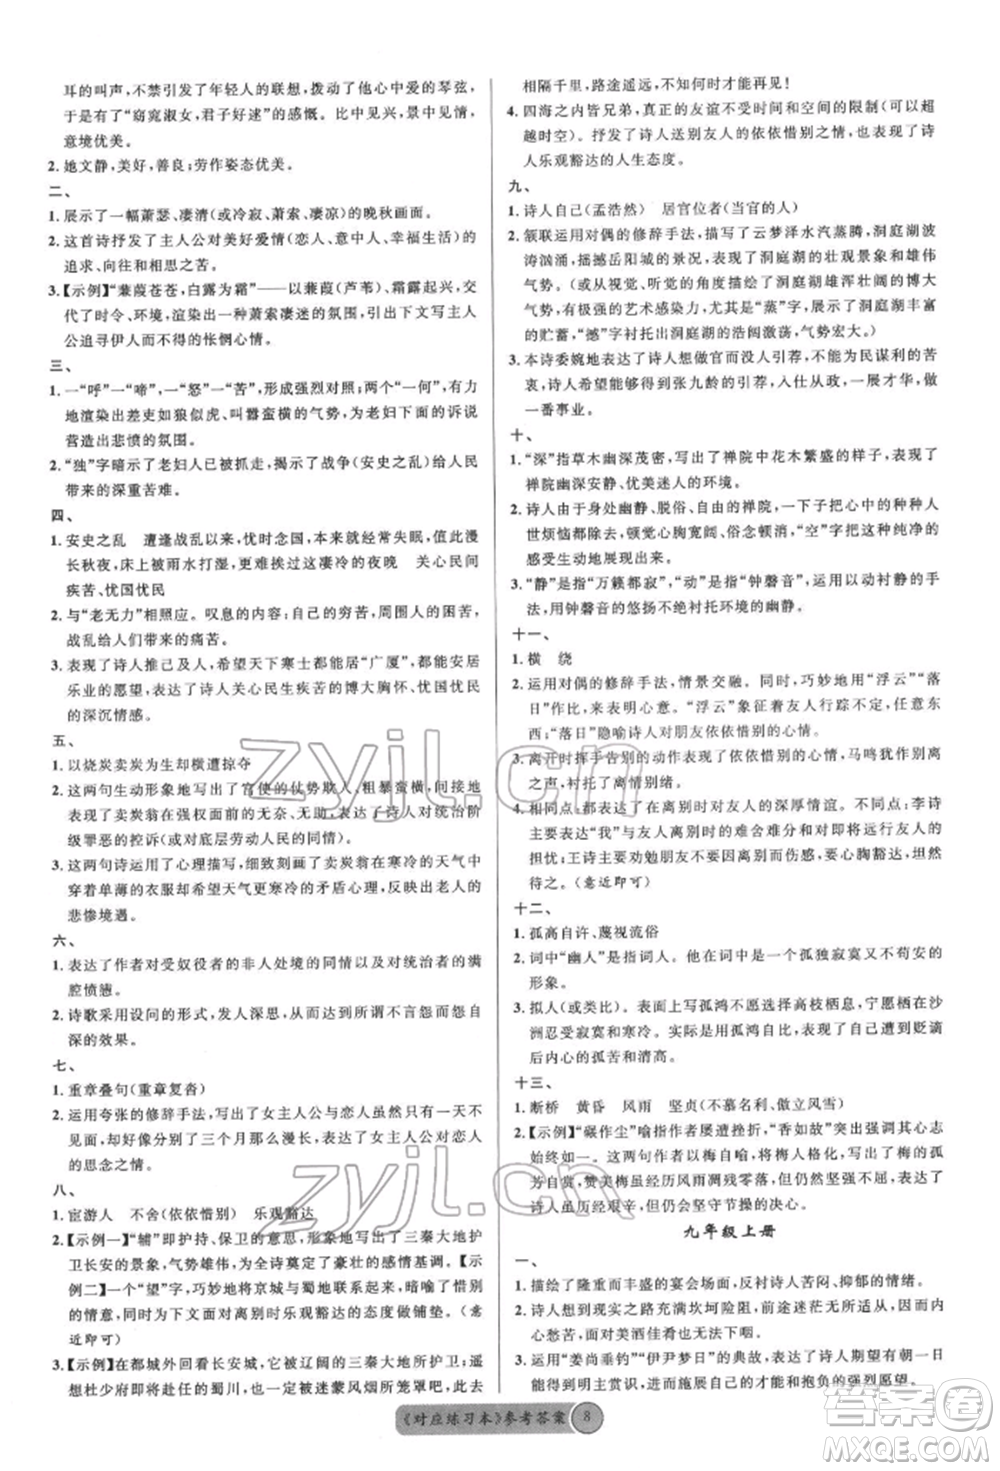 耳的叫声,不禁引发了年轻人的联想,拨动了他心中爱的琴弦,
发出了“窈窕淑女,君子好逑”的感慨。以声起兴,借景生情,
意境优美。
2. 她文静,美好,善良;劳作姿态优美。
二、
1. 展示了一幅萧瑟、凄清(或冷寂、萧索、凄凉)的晚秋画面。
2. 这首诗抒发了主人公对美好爱情(恋人、意中人、幸福生活)的
追求、向往和相思之苦。
3.【示例】“蒹葭苍苍,白露为霜”——以蒹葭(芦苇)、霜露起兴,
交代了时令、环境,渲染出一种萧索凄迷的氛围,引出下文写主人
公追寻伊人而不得的怅惘心情。
三、
1. 一“呼”一“啼”,一“怒”一“苦”,形成强烈对照;两个“一何”,有力
地渲染出差吏如狼似虎、叫嚣蛮横的气势,为老妇下面的诉说
营造出悲愤的氛围。
2. “独”字暗示了老妇人已被抓走,揭示了战争(安史之乱)给人民
带来的深重苦难。
四、
1. 安史之乱 遭逢战乱以来,忧时念国,本来就经常失眠,何况漫
长秋夜,床上被雨水打湿,更难挨过这凄冷的夜晚 关心民间
疾苦、忧国忧民
2. 与“老无力”相照应。叹息的内容:自己的穷苦,周围人的困苦,
战乱给人们带来的痛苦。
3. 表现了诗人推己及人,希望天下寒士都能居“广厦”、都能安居
乐业的愿望,表达了诗人关心民生疾苦的博大胸怀、忧国忧民
的深沉情感。
五、
1. 以烧炭卖炭为生却横遭掠夺
2. 这两句生动形象地写出了官使的仗势欺人、粗暴蛮横,同时也
写出了卖炭翁在强权面前的无奈、无助,表达了诗人对统治阶
级罪恶的控诉(或对底层劳动人民的同情)。
3. 这两句诗运用了心理描写,写出了卖炭翁在寒冷的天气中
穿着单薄的衣服却希望天气更寒冷的矛盾心理,反映出老人的
悲惨境遇。
六、
1. 表达了作者对受奴役者的非人处境的同情以及对统治者的满
腔愤懑。
2. 诗歌采用设问的形式,发人深思,以达到所谓不言怨而怨自
深的效果。
七、
1. 重章叠句(重章复沓)
2. 运用夸张的修辞手法,写出了女主人公与恋人虽然只有一天不
见面,却好像分别了三个月那么漫长,表达了女主人公对恋人
的思念之情。
八、
1. 宦游人 不舍(依依惜别) 乐观豁达
2.【示例一】“辅”即护持、保卫的意思。形象地写出了三秦大地护
卫长安的景象,气势雄伟,为全诗奠定了豪壮的感情基调。【示
例二】一个“望”字,巧妙地将京城与蜀地联系起来,暗喻了惜别
的情意,同时为下文面对离别时乐观豁达的态度做铺垫。(意
近即可)
3.【示例】在都城外回看长安城,它被辽阔的三秦大地所护卫;遥
想杜少府即将赴任的蜀川,却为迷蒙风烟所笼罩吧,此去
相隔千里,路途遥远,不知何时才能再见!
4. 四海之内皆兄弟,真正的友谊不受时间和空间的限制(可超
越时空)。抒发了诗人送别友人的依依惜别之情,表现了诗
人乐观豁达的人生态度。
九、
1. 诗人自己(孟浩然) 居官位者(当官的人)
2. 颔联运用对偶的修辞手法,描写了云梦泽水汽蒸腾,洞庭湖波
涛汹涌,摇撼岳阳城的景况。表现了洞庭湖的壮观景象和雄伟
气势。(或从视觉、听觉的角度描写,突出洞庭湖雄浑壮阔的博大
气势,有很强的艺术感染力,尤其是“蒸”字,写出洞庭湖丰富
的贮蓄,“撼”字衬托出洞庭湖的浩阔激荡,气势宏大。)
3. 本诗委婉地表达了诗人想做官而没有人引荐,不能为民谋利的苦
衷,诗人希望能够得到张九龄的引荐,入仕从政,一展才华,做
一番事业。
十、
1. “深”指草木幽深茂密,写出了禅院中花木繁盛的样子,表现了
禅院幽深安静、优美迷人的环境。
2. 诗人由于身处幽静、脱俗、自由的禅院,一下子把心中的种种人
世烦恼都除去,顿觉心胸宽阔、俗念顿消,“空”字把这种纯净的
感受生动地展现出来。
3. “静”是指“万籁都寂”,“动”是指“钟磬音”,运用以动衬静的手
法,用钟磬音的悠扬不绝衬托环境的幽静。
十一、
1. 横 绕
2. 运用对偶的修辞手法,情景交融。同时,巧妙地用“浮云”“落
日”作比,来表明心意。“浮云”象征着友人行踪不定,任意东
西;“落日”隐喻诗人对朋友依依惜别的心情。
3. 离开时挥手告别的动作表现了依依惜别的心情,马鸣犹作别离
之声,衬托了离别情绪。
4. 相同点:都表达了在离别时对友人的深厚情谊。不同点:李诗
主要表达“我”与友人离别时的难舍难分和对远行友人的
担忧;王诗主要劝勉朋友不要因离别而伤感,要心胸豁达、坦然
待之。(意近即可)
十二、
1. 孤高自许、蔑视流俗
2. 词中“幽人”是指词人。他在词中是一个孤独寂寞又不苟安的
形象。
3. 拟人(或类比)。表面上写孤鸿不愿选择高枝栖息,宁愿栖在沙
洲忍受寂寞和寒冷。实际是用孤鸿自比,表现了苏轼被贬谪
后内心的孤苦和清高。
十三、
1. 断桥 黄昏 风雨 坚贞(不慕名利、傲立风雪)
2.【示例】“碾作尘”喻指作者屡遭挫折,“香如故”比喻其心志
始终如一。这两句作者以梅自喻,将梅人格化,写出了梅的孤
芳自赏,赞美梅虽经历风雨凋残零落,但仍然坚贞自守的品质。诗
人虽历经艰辛,但仍然坚守节操的决心。
九年级上册
一、
1. 描绘了隆重而丰盛的宴会场面,反衬诗人苦闷、抑郁的情绪。
2. 诗人想到实现理想之路充满坎坷险阻,前途迷茫无所适从,内
心愁苦,所以对美酒佳肴也无法下咽。
3. 运用“姜尚垂钓”“伊尹梦日”的典故,表达了诗人期望有朝一日
能够像他们一样,实现理想和抱负的强烈愿望。
《对应练习本》参考答案 8
zyjl.cn
zyjl.cn
答案圈
MXQE.COM